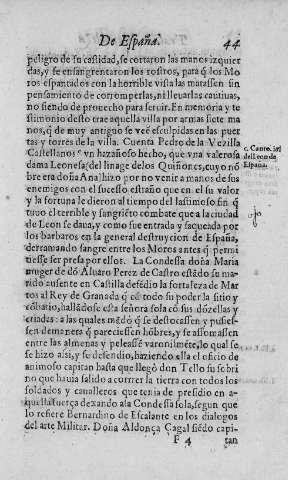 De España. 44
peligro de su castidad, se cortaron las manos izquier
das, y se ensangrentaron los rostros, para q̃ los Mo
ros espantados con la horrible vista las matassen sin
pensamiento de corromperlas, ni lleuarlas cautiuas,
no siendo de prouecho para seruir. En memoria y te
stimonio desto trae aquella villa por armas siete ma
nos, q̃ de muy antiguo se veẽ esculpidas en las puer
tas y torres de la villa. Cuenta Pedro de la Vezilla
Castellanos ͨ vn hazañoso hecho, que vna valerosa
dama Leonesa, del linage delos Quiñones, cuyo nõ
bre era doña Ana hizo por no venir a manos de sus
enemigos con el sucesso estraño que en el su valor
y la fortuna le dieron al tiempo del lastimoso fin q̃
tuuo el terrible y sangriẽto combate que a la ciudad
de Leon se daua, y como fue entrada y saqueada por
los barbaros en la general destruycion de España,
derramando sangre entre los Moros antes q̃ permi
tiesse ser presa por ellos. La Condessa doña Maria
muger de dõ Aluaro Perez de Castro estãdo su ma
rido ausente en Castilla defẽdio la fortaleza de Mar
tos al Rey de Granada q̃ cõ todo su poder la sitio y
cõbatio, hallãdose esta señora sola cõ sus dõzellas y
criadas: a las quales mãdò q̃ se destocassen y pusies-
sen demanera q̃ pareciessen hõbres, y se assomassen
entre las almenas y peleassẽ varonilmẽte, lo qual se
se hizo assi, y se defendio, haziendo ella el oficio de
animoso capitan hasta que llegò don Tello su sobri
no que hauia salido a correr la tierra con todos los
soldados y caualleros que tenia de presidio en a-
quella fuerça dexando a la Condessa sola, segun que
lo refiere Bernardino de Escalante en los dialogos
del arte Militar. Doña Aldonça Cagal siẽdo capi-
F 4 tan
c. Canto.
del Leon de
España.